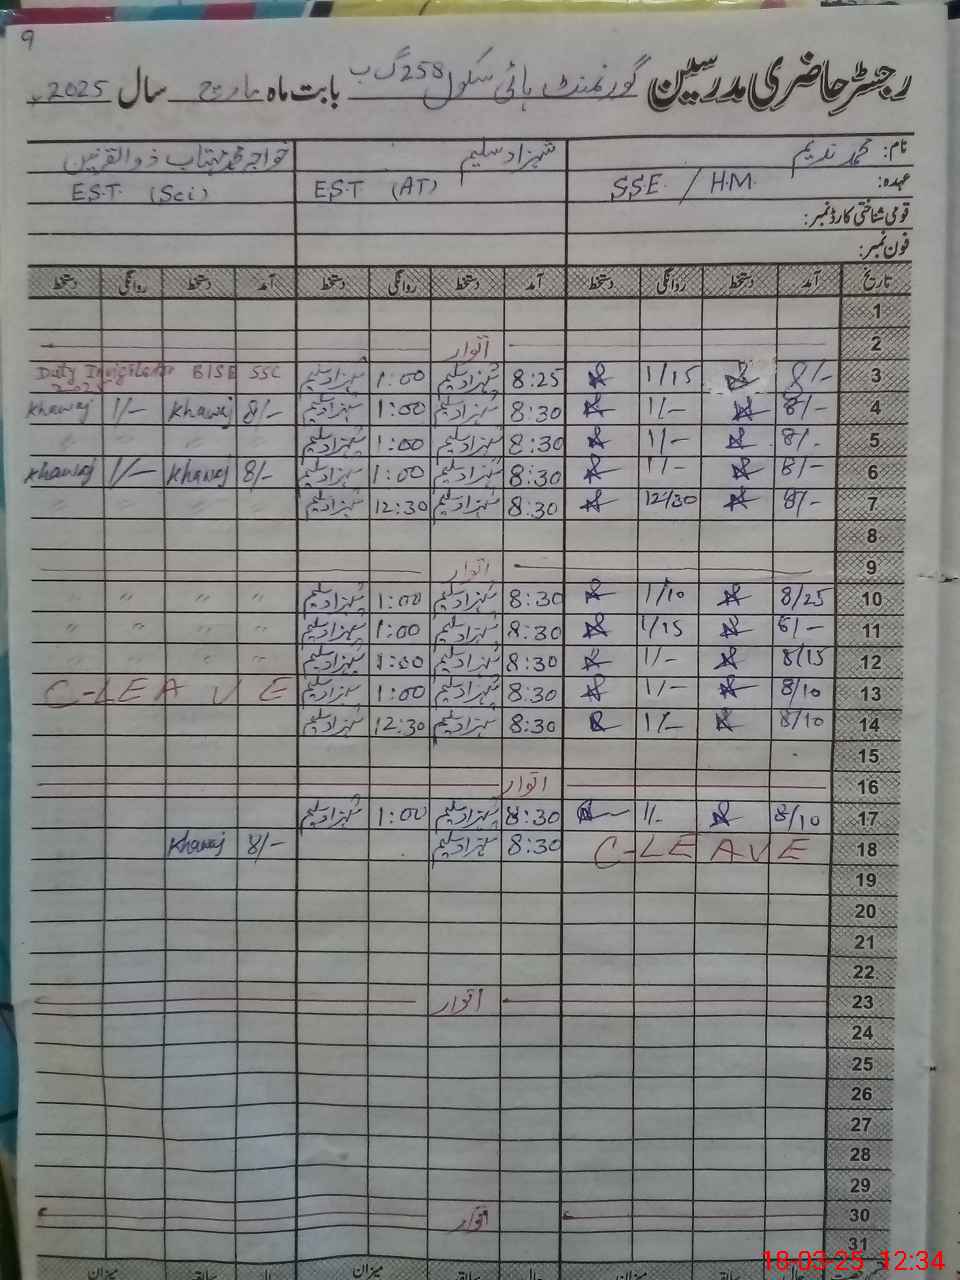 9
رجسٹر حاضری مدرسین گورنمنٹ ہائی سکول 258 گ ب بابت ماہ مارچ سال 2025ء
نام: محمد ندیم شہزاد سلیم خواجہ محمد مہتاب ذوالقرنین
عہدہ: SSE / H.M. E.S.T (AT) E.S.T. (Sci)
قومی شناختی کارڈ نمبر:
فون نمبر:
تاریخ آمد دستخط روانگی دستخط آمد دستخط روانگی دستخط آمد دستخط روانگی دستخط
1
2 اتوار
3 8/- 1/15 8:25 شہزاد سلیم 1:00 شہزاد سلیم Duty BISE SSC 2025
4 8/- 1/- 8:30 شہزاد سلیم 1:00 شہزاد سلیم 8/- Khawaj 1/- Khawaj
5 8/- 1/- 8:30 شہزاد سلیم 1:00 شہزاد سلیم 〃 〃 〃 〃
6 8/- 1/- 8:30 شہزاد سلیم 1:00 شہزاد سلیم 8/- Khawaj 1/- Khawaj
7 8/- 12/30 8:30 شہزاد سلیم 12:30 شہزاد سلیم 〃 〃 〃 〃
8
9 اتوار
10 8/25 1/10 8:30 شہزاد سلیم 1:00 شہزاد سلیم 〃 〃 〃 〃
11 8/- 1/15 8:30 شہزاد سلیم 1:00 شہزاد سلیم 〃 〃 〃 〃
12 8/15 1/- 8:30 شہزاد سلیم 1:00 شہزاد سلیم 〃 〃 〃 〃
13 8/10 1/- 8:30 شہزاد سلیم 1:00 شہزاد سلیم C-LEAVE
14 8/10 1/- 8:30 شہزاد سلیم 12:30 شہزاد سلیم
15
16 اتوار
17 8/10 1/- 8:30 شہزاد سلیم 1:00 شہزاد سلیم
18 C-LEAVE 8:30 شہزاد سلیم 8/- Khawaj
19
20
21
22
23 اتوار
24
25
26
27
28
29
30 اتوار
31
میزان سابقہ حال میزان سابقہ حال میزان
18-03-25 12:34